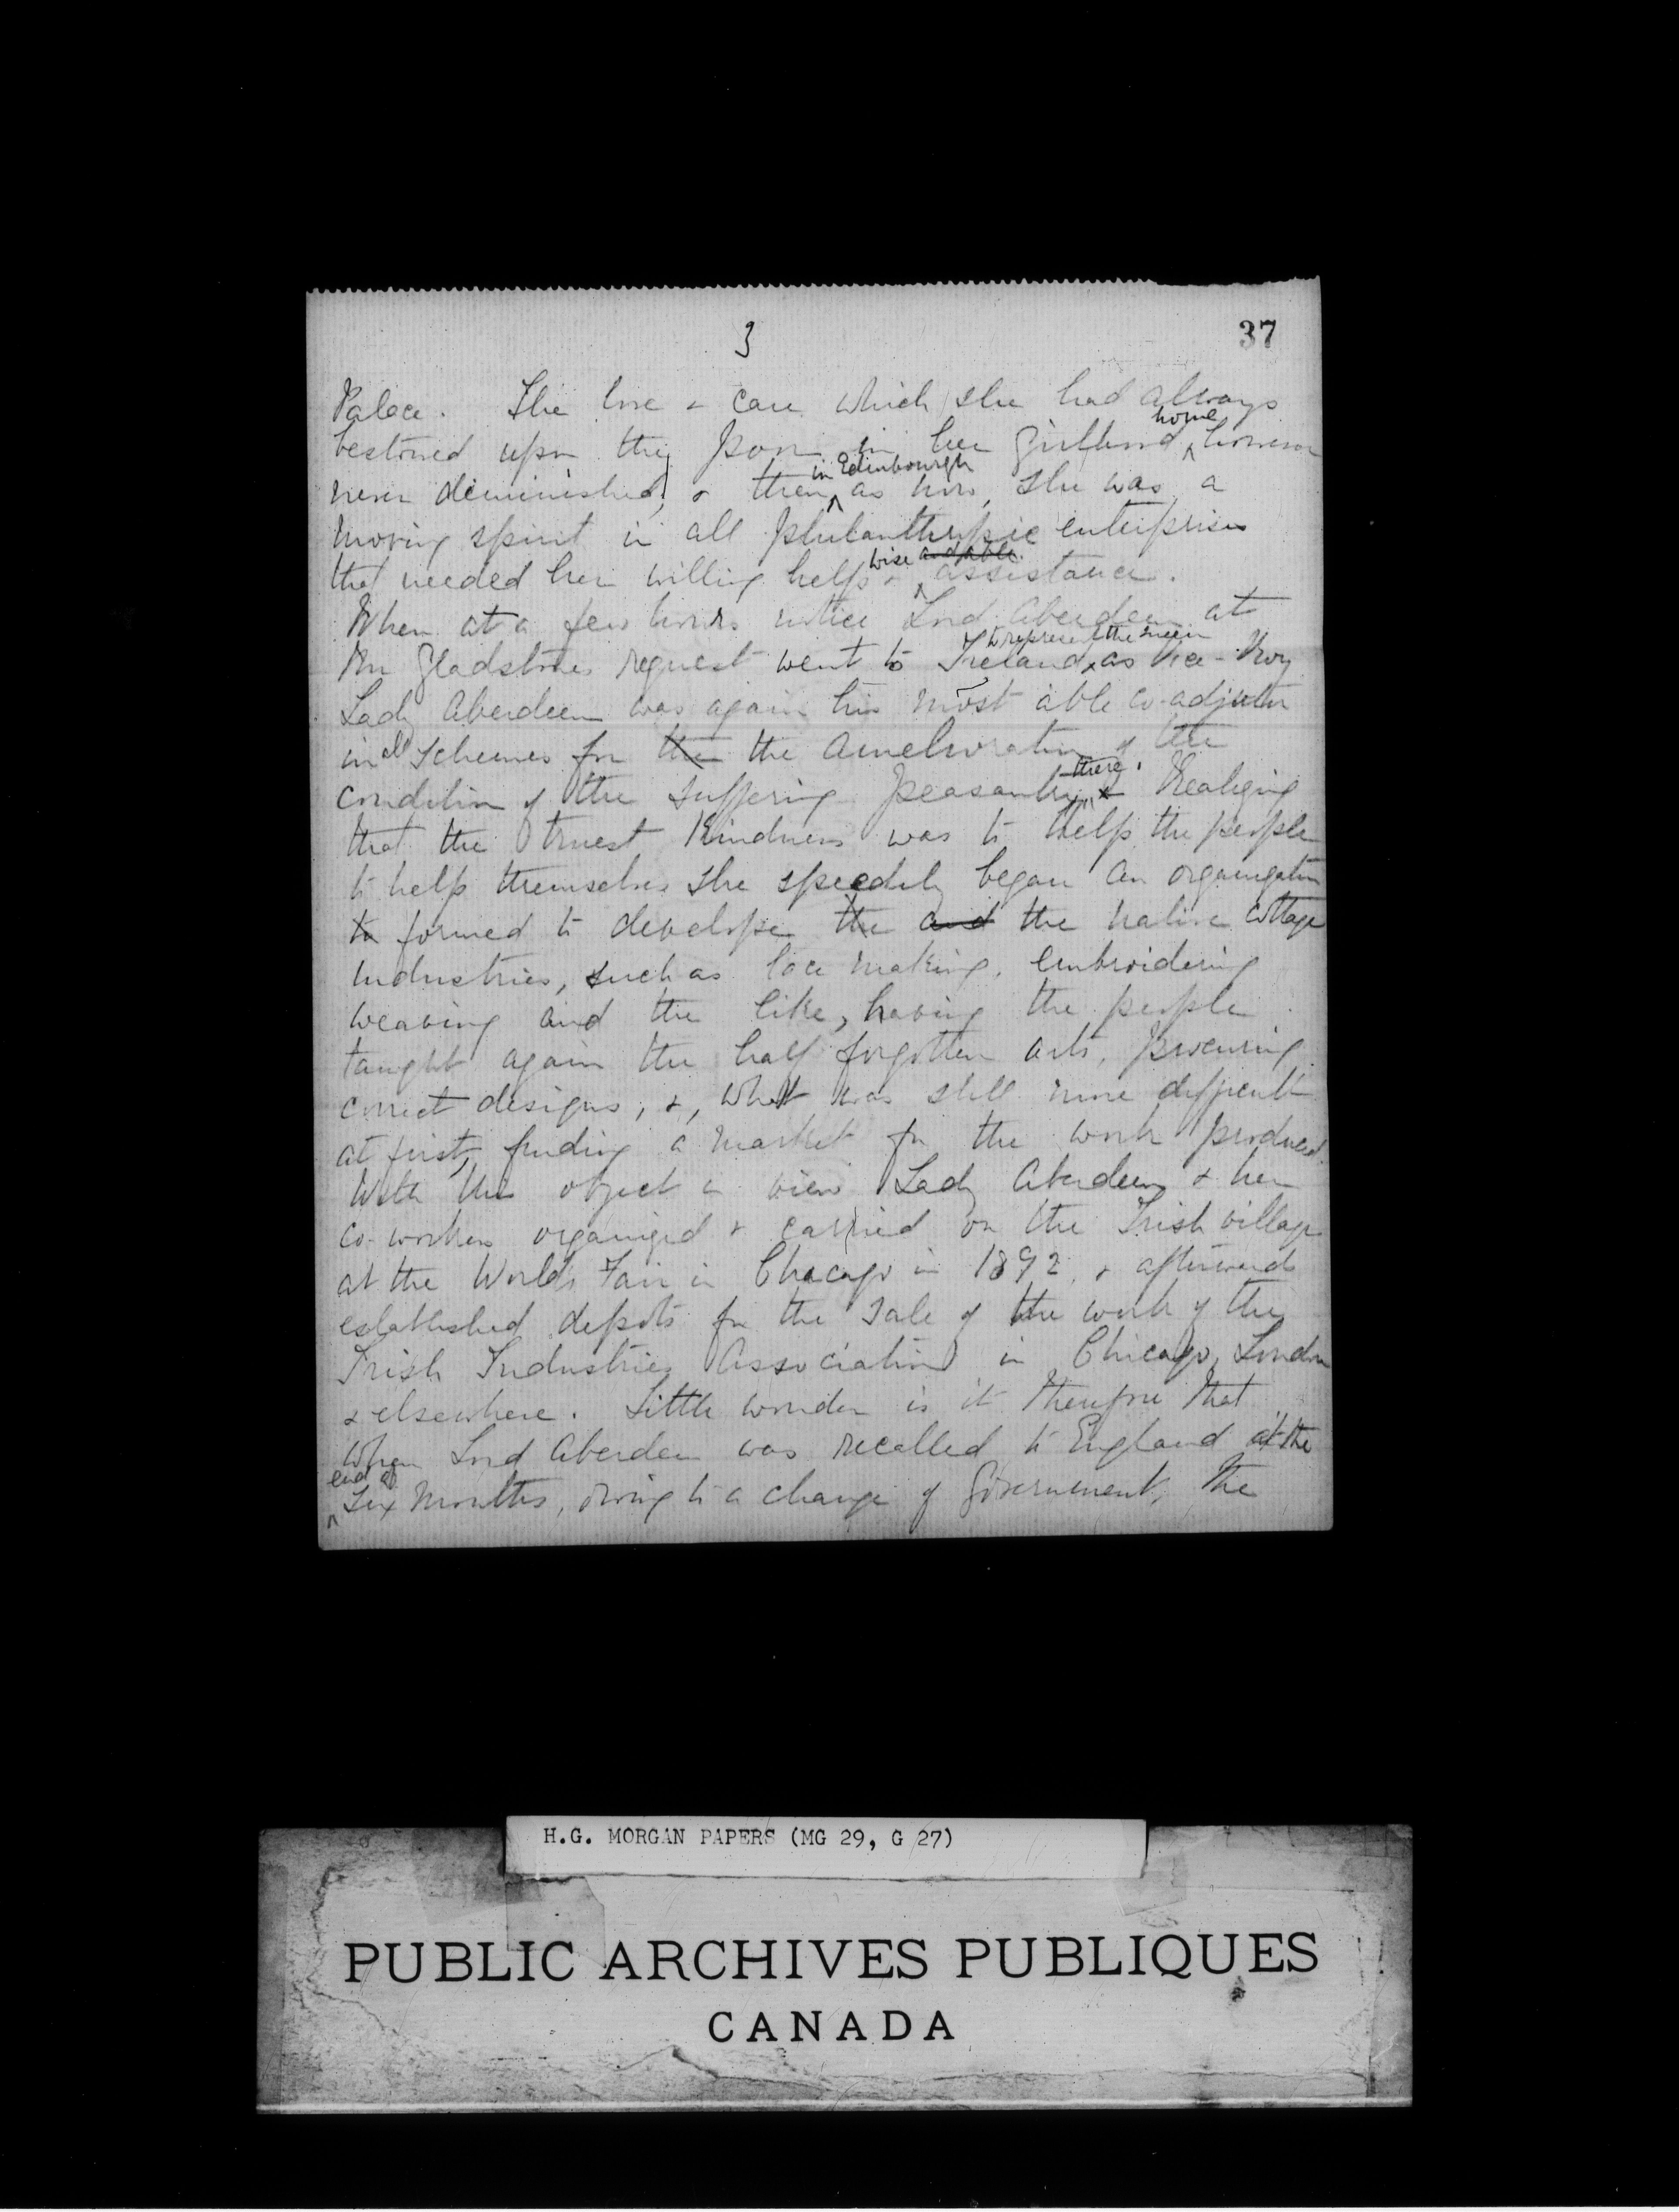 3
37
Palace. The love & care which she had always
bestowed upon the poor in her girlhood ^home however
never diminished, & then ^in Edinbourgh as now, she was a
moving spirit in all philanthropic enterprises
that needed her willing help & wise and able assistance.
When at a few hours notice Lord Aberdeen at
Mr Gladstones request went to Ireland ^to represent the Queen as Vice-Roy
Lady Aberdeen was again his most able co-adjutor
in all schemes for the the amelioration of the
condition of the suffering peasantry there. & Realizing
that the truest kindness was to help the people
to help themselves she speedily began an organization
to formed to develope the and the native cottage
industries, such as lace making, embroidering
weaving and the like, having the people
taught again the half forgotten arts, procuring
correct designs, &, what was still more difficult
at first, finding a market for the work produced.
With this object in view Lady Aberdeen & her
co-workers organized & carried on the Irish village
at the World's Fair in Chicago in 1892, & afterwards
established depots for the sale of the work of the
Irish Industries Association in Chicago, London
& elsewhere. Little wonder is it therefore that
when Lord Aberdeen was recalled to England at the
^end of Six months, owing to a change of Government, the
H.G. MORGAN PAPERS (MG 29, G 27)
PUBLIC ARCHIVES PUBLIQUES
CANADA